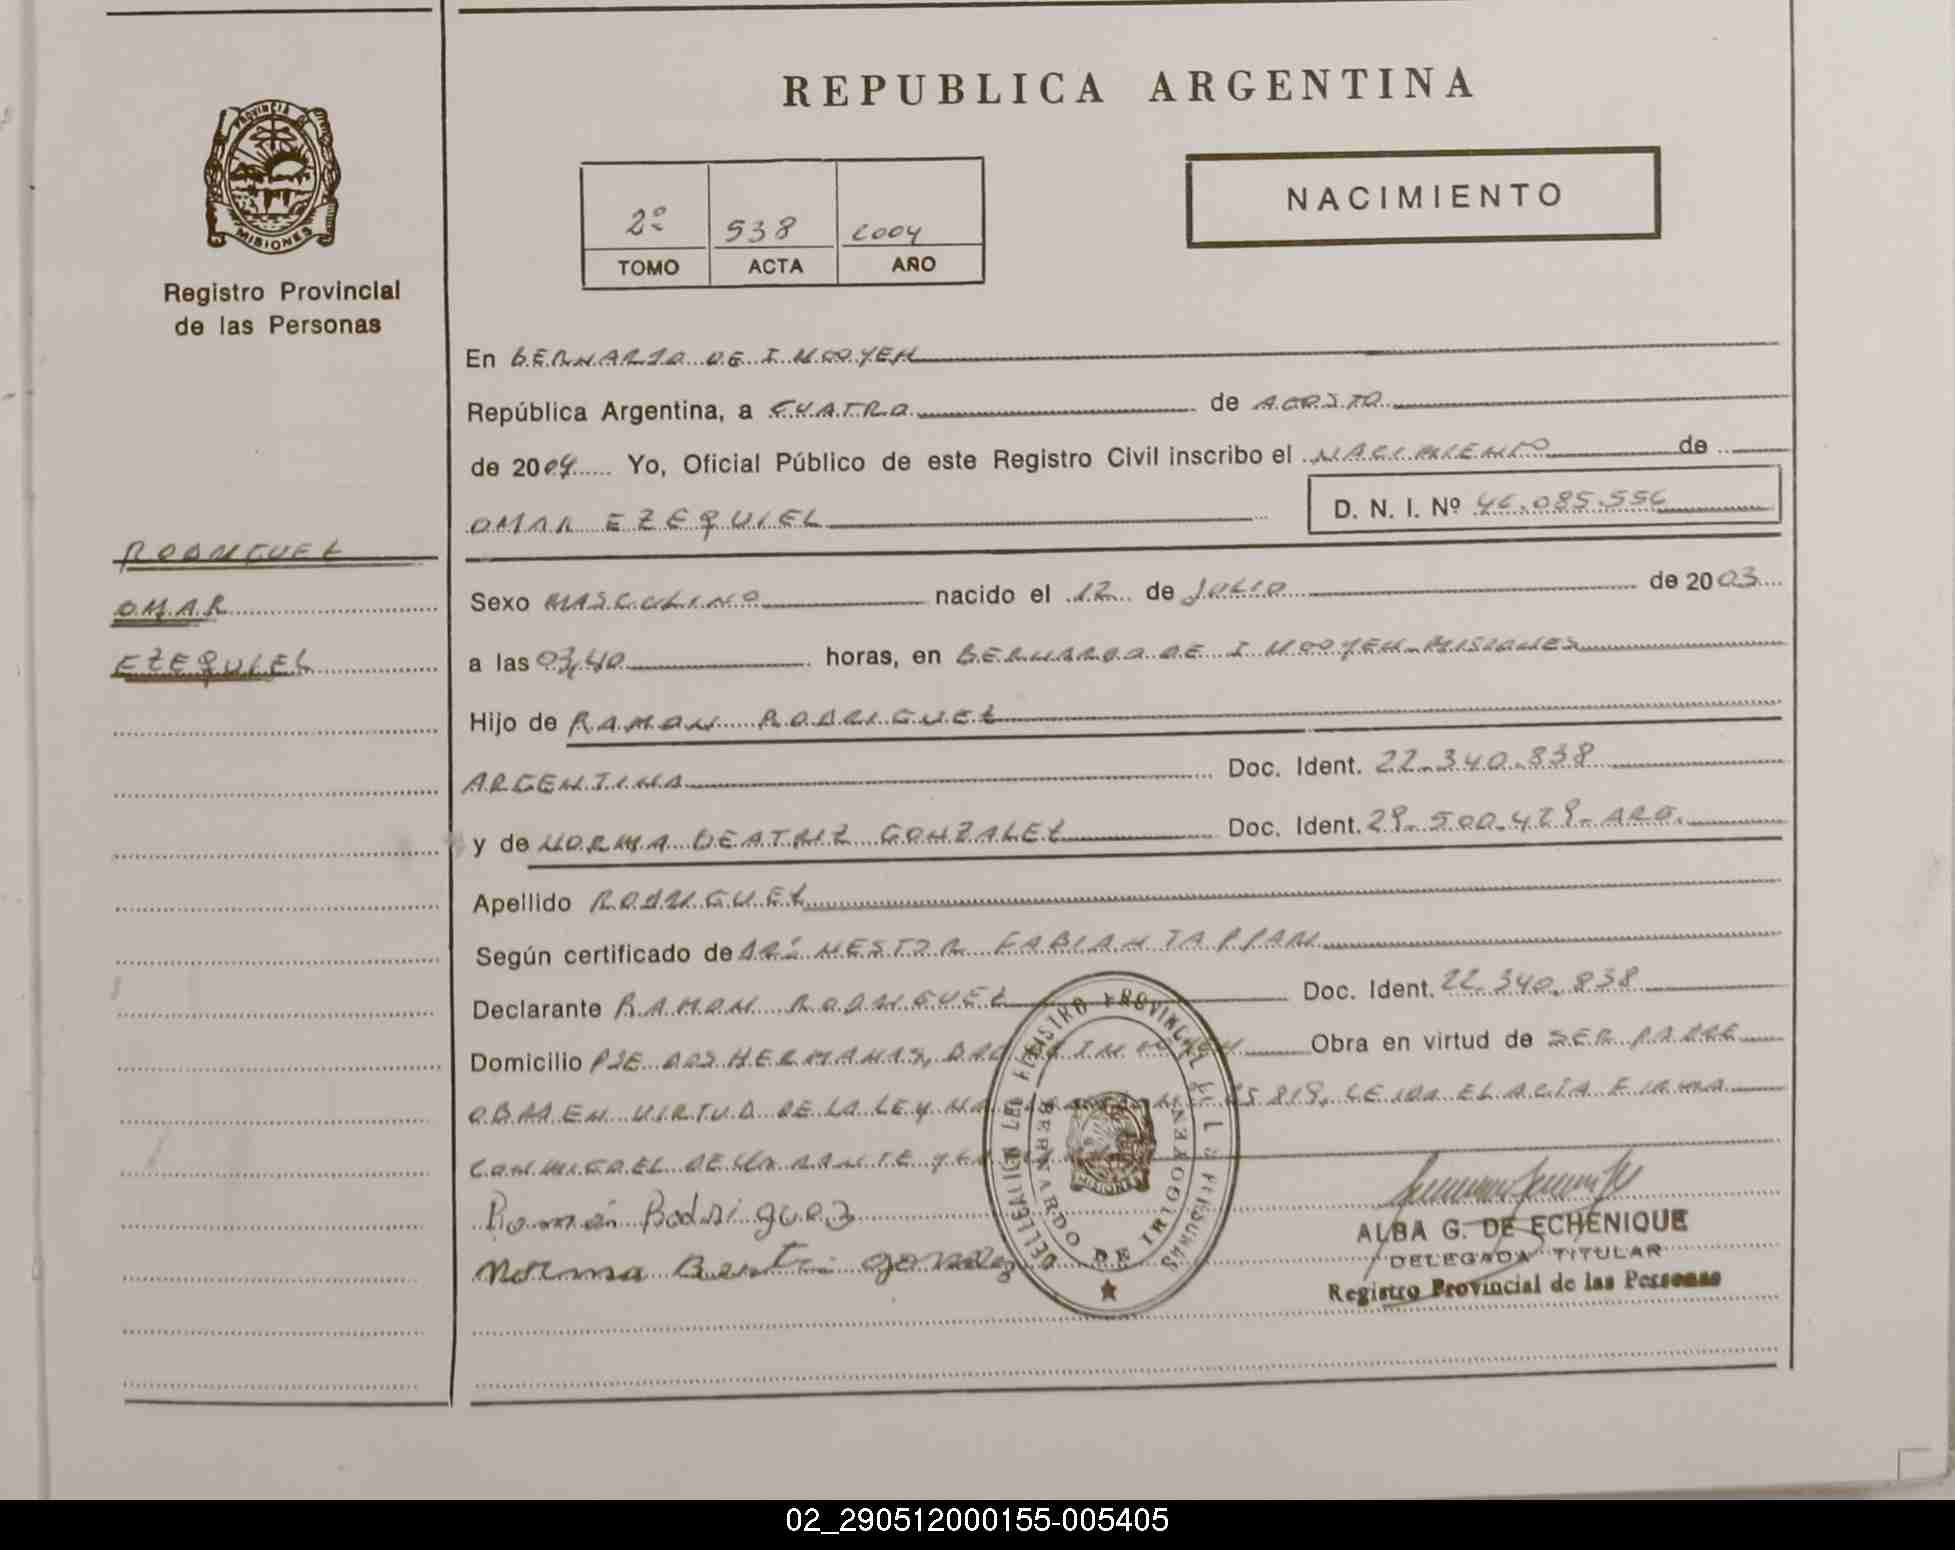 REPUBLICA ARGENTINA
PROVINCIA DE MISIONES
Registro Provincial
de las Personas
NACIMIENTO
2º 538 2004
TOMO ACTA AÑO
En BERNARDO DE IRIGOYEN
República Argentina, a CUATRO de AGOSTO
de 2004 Yo, Oficial Público de este Registro Civil inscribo el NACIMIENTO de
OMAR EZEQUIEL D. N. I. Nº 46.085.556
RODRIGUEZ
OMAR
EZEQUIEL
Sexo MASCULINO nacido el 12 de JULIO de 2003
a las 03,40 horas, en BERNARDO DE IRIGOYEN-MISIONES
Hijo de RAMON RODRIGUEZ
ARGENTINA Doc. Ident. 22.340.838
y de NORMA BEATRIZ GONZALEZ Doc. Ident. 29.500.429-ARG.
Apellido RODRIGUEZ
Según certificado de NESTOR FABIAN TAPPARI
Declarante RAMON RODRIGUEZ Doc. Ident. 22.340.838
Domicilio PJE. DOS HERMANAS, BDO DE IRIGOYEN Obra en virtud de SER PADRE
OBRA EN VIRTUD DE LA LEY Nº 25.819. LEIDA EL ACTA FIRMA
CONMIGO EL DECLARANTE Y
Ramón Rodriguez
Norma Beatri gonzalez
DELEGACION DEL REGISTRO PROVINCIAL DE LAS PERSONAS
BERNARDO DE IRIGOYEN
MISIONES
ALBA G. DE ECHENIQUE
DELEGADA TITULAR
Registro Provincial de las Personas
02_290512000155-005405